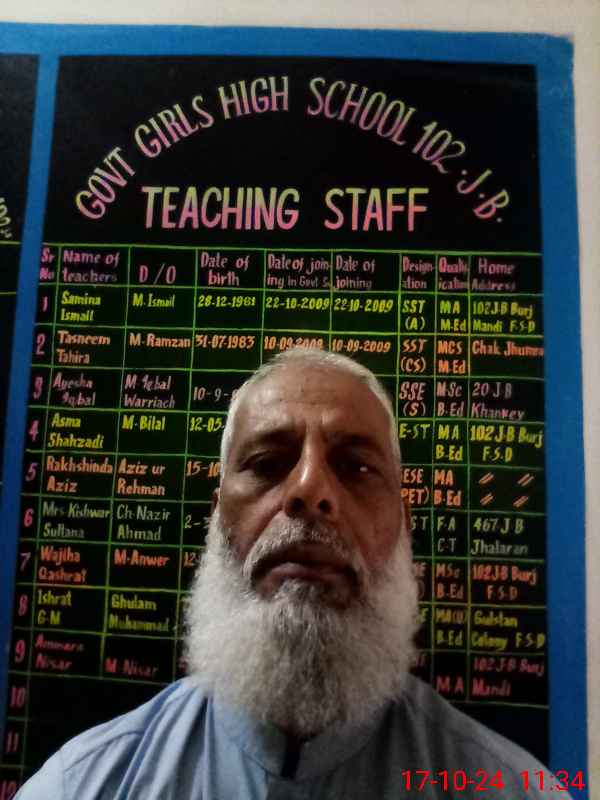 GOVT GIRLS HIGH SCHOOL 102.J.B.
TEACHING STAFF
Sr No Name of teachers D/O Date of birth Date of joining in Govt S Date of joining Designation Qualification Home Address
1 Samina Ismail M. Ismail 28-12-1961 22-10-2009 22-10-2009 SST (A) MA M.Ed 102 J-B Burj Mandi F.S.D
2 Tasneem Tahira M. Ramzan 31-07-1983 10-09-2009 10-09-2009 SST (CS) MCS M.Ed Chak Jhumra
3 Ayesha Iqbal M Iqbal Warriach 10-9- SSE (S) MSc B-Ed 20 J B Khankey
4 Asma Shahzadi M-Bilal 12-05- E-ST MA B.Ed 102 J-B Burj F.S.D
5 Rakhshinda Aziz Aziz ur Rehman 15-10 ESE PET) MA B-Ed " "
6 Mrs-Kishwar Sultana Ch-Nazir Ahmad 2- ST F-A C-T 467 J B Jhalaran
7 Wajiha Qashrat M-Anwer 12 MSc B.Ed 102 J-B Burj F.S.D
8 Ishrat G-M Ghulam Muhammad B.Ed Gulstan Colony F.S.D
9 Ammara Nisar M Nisar M A 102 J-B Burj Mandi
10
11
12
17-10-24 11:34